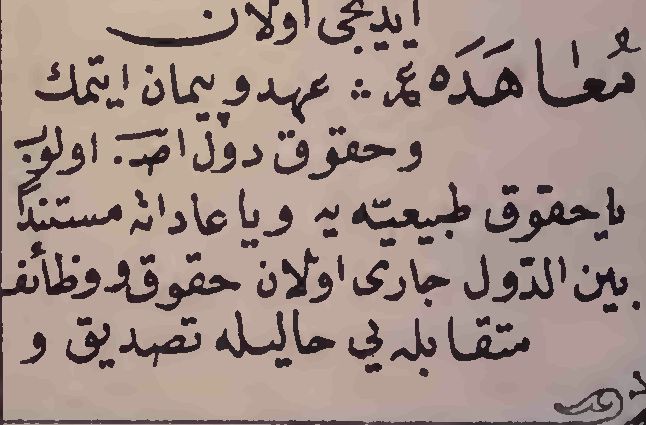 ايديجى اولان
مُعاهَدَه عر :: عهد و پيمان ايتمك
و حقوق دول اصـ. اولوب
يا حقوق طبيعيّه يه ويا عاداته مستنداً
بين الدّول جارى اولان حقوق و وظائف
متقابله يى حاليله تصديق و